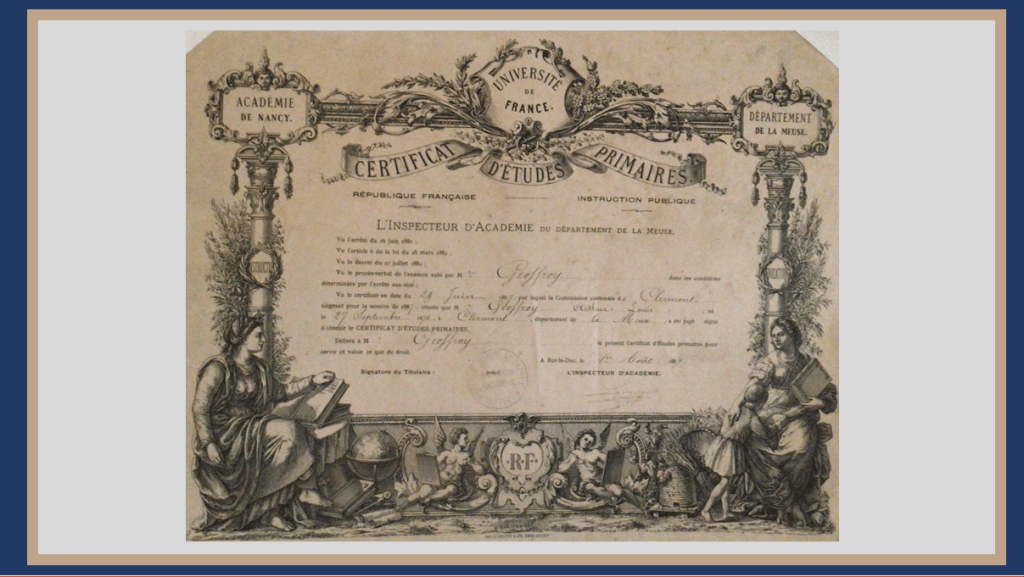 UNIVERSITÉ
DE
FRANCE.
ACADÉMIE
DE NANCY.
DÉPARTEMENT
DE LA MEUSE.
CERTIFICAT D'ÉTUDES PRIMAIRES
RÉPUBLIQUE FRANÇAISE
INSTRUCTION PUBLIQUE
L'INSPECTEUR D'ACADEMIE DU DÉPARTEMENT DE LA MEUSE,
Vu l'arrêté du 16 juin 1880 ;
Vu l'article 6 de la loi du 28 mars 1882 ;
Vu le décret du 27 juillet 1882 ;
Vu le procès-verbal de l'examen subi par M Geoffroy dans les conditions
déterminées par l'arrêté sus-visé ;
Vu le certificat en date du 29 Juin par lequel la Commission cantonale d Clermont
siégeant pour la session de atteste que M Geoffroy Arthur Louis, né
le 27 Septembre à Clermont, département de la Meuse, a été jugé digne
d'obtenir le CERTIFICAT D'ÉTUDES PRIMAIRES.
Délivre à M Geoffroy le présent Certificat d'Études primaires pour
servir et valoir ce que de droit.
A Bar-le-Duc, le 1er Août
Signature du Titulaire :
L'INSPECTEUR D'ACADÉMIE,
INSTRUCTION
EDUCATION
R.F.